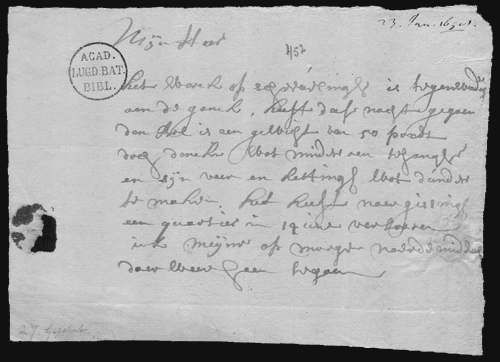 23. Jan. 1658.
Mijn Heer
457
ACAD.
LUGD. BAT.
BIBL.
het Werck op scheveringh is tegenwoordigh
aen de ganck, heeft dese nacht gegaen
den hol is een gewicht van 50 pondt
doch dencke wat minder aen te hangen
en sijn veer en kettingh wat dunder
te maken. het heeft naer gissingh
een quartier in 14 uire verlooren
ick meijne op morgen naerdemiddag
daer weer heen te gaen
27